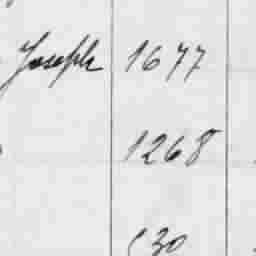 Joseph 1677
1268
530